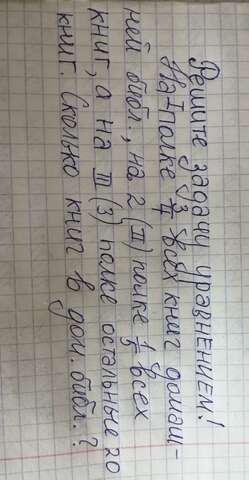 Решите задачу уравнением!
На I полке 3/4 всех книг домаш-
ней библ., на 2 (II) полке 1/5 всех
книг, а на III (3) полке остальные 20
книг. Сколько книг в дом. библ.?